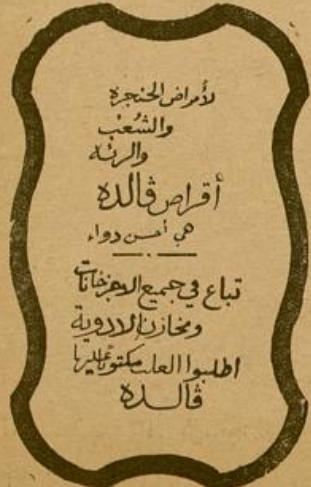 لأمراض الحنجرة
والشعب
والرئه
أقراص ڤالده
هي أحسن دواء
تباع في جميع الاجزخانات
ومخازن الادوية
اطلبوا العلب مكتوباً عليها
ڤالده